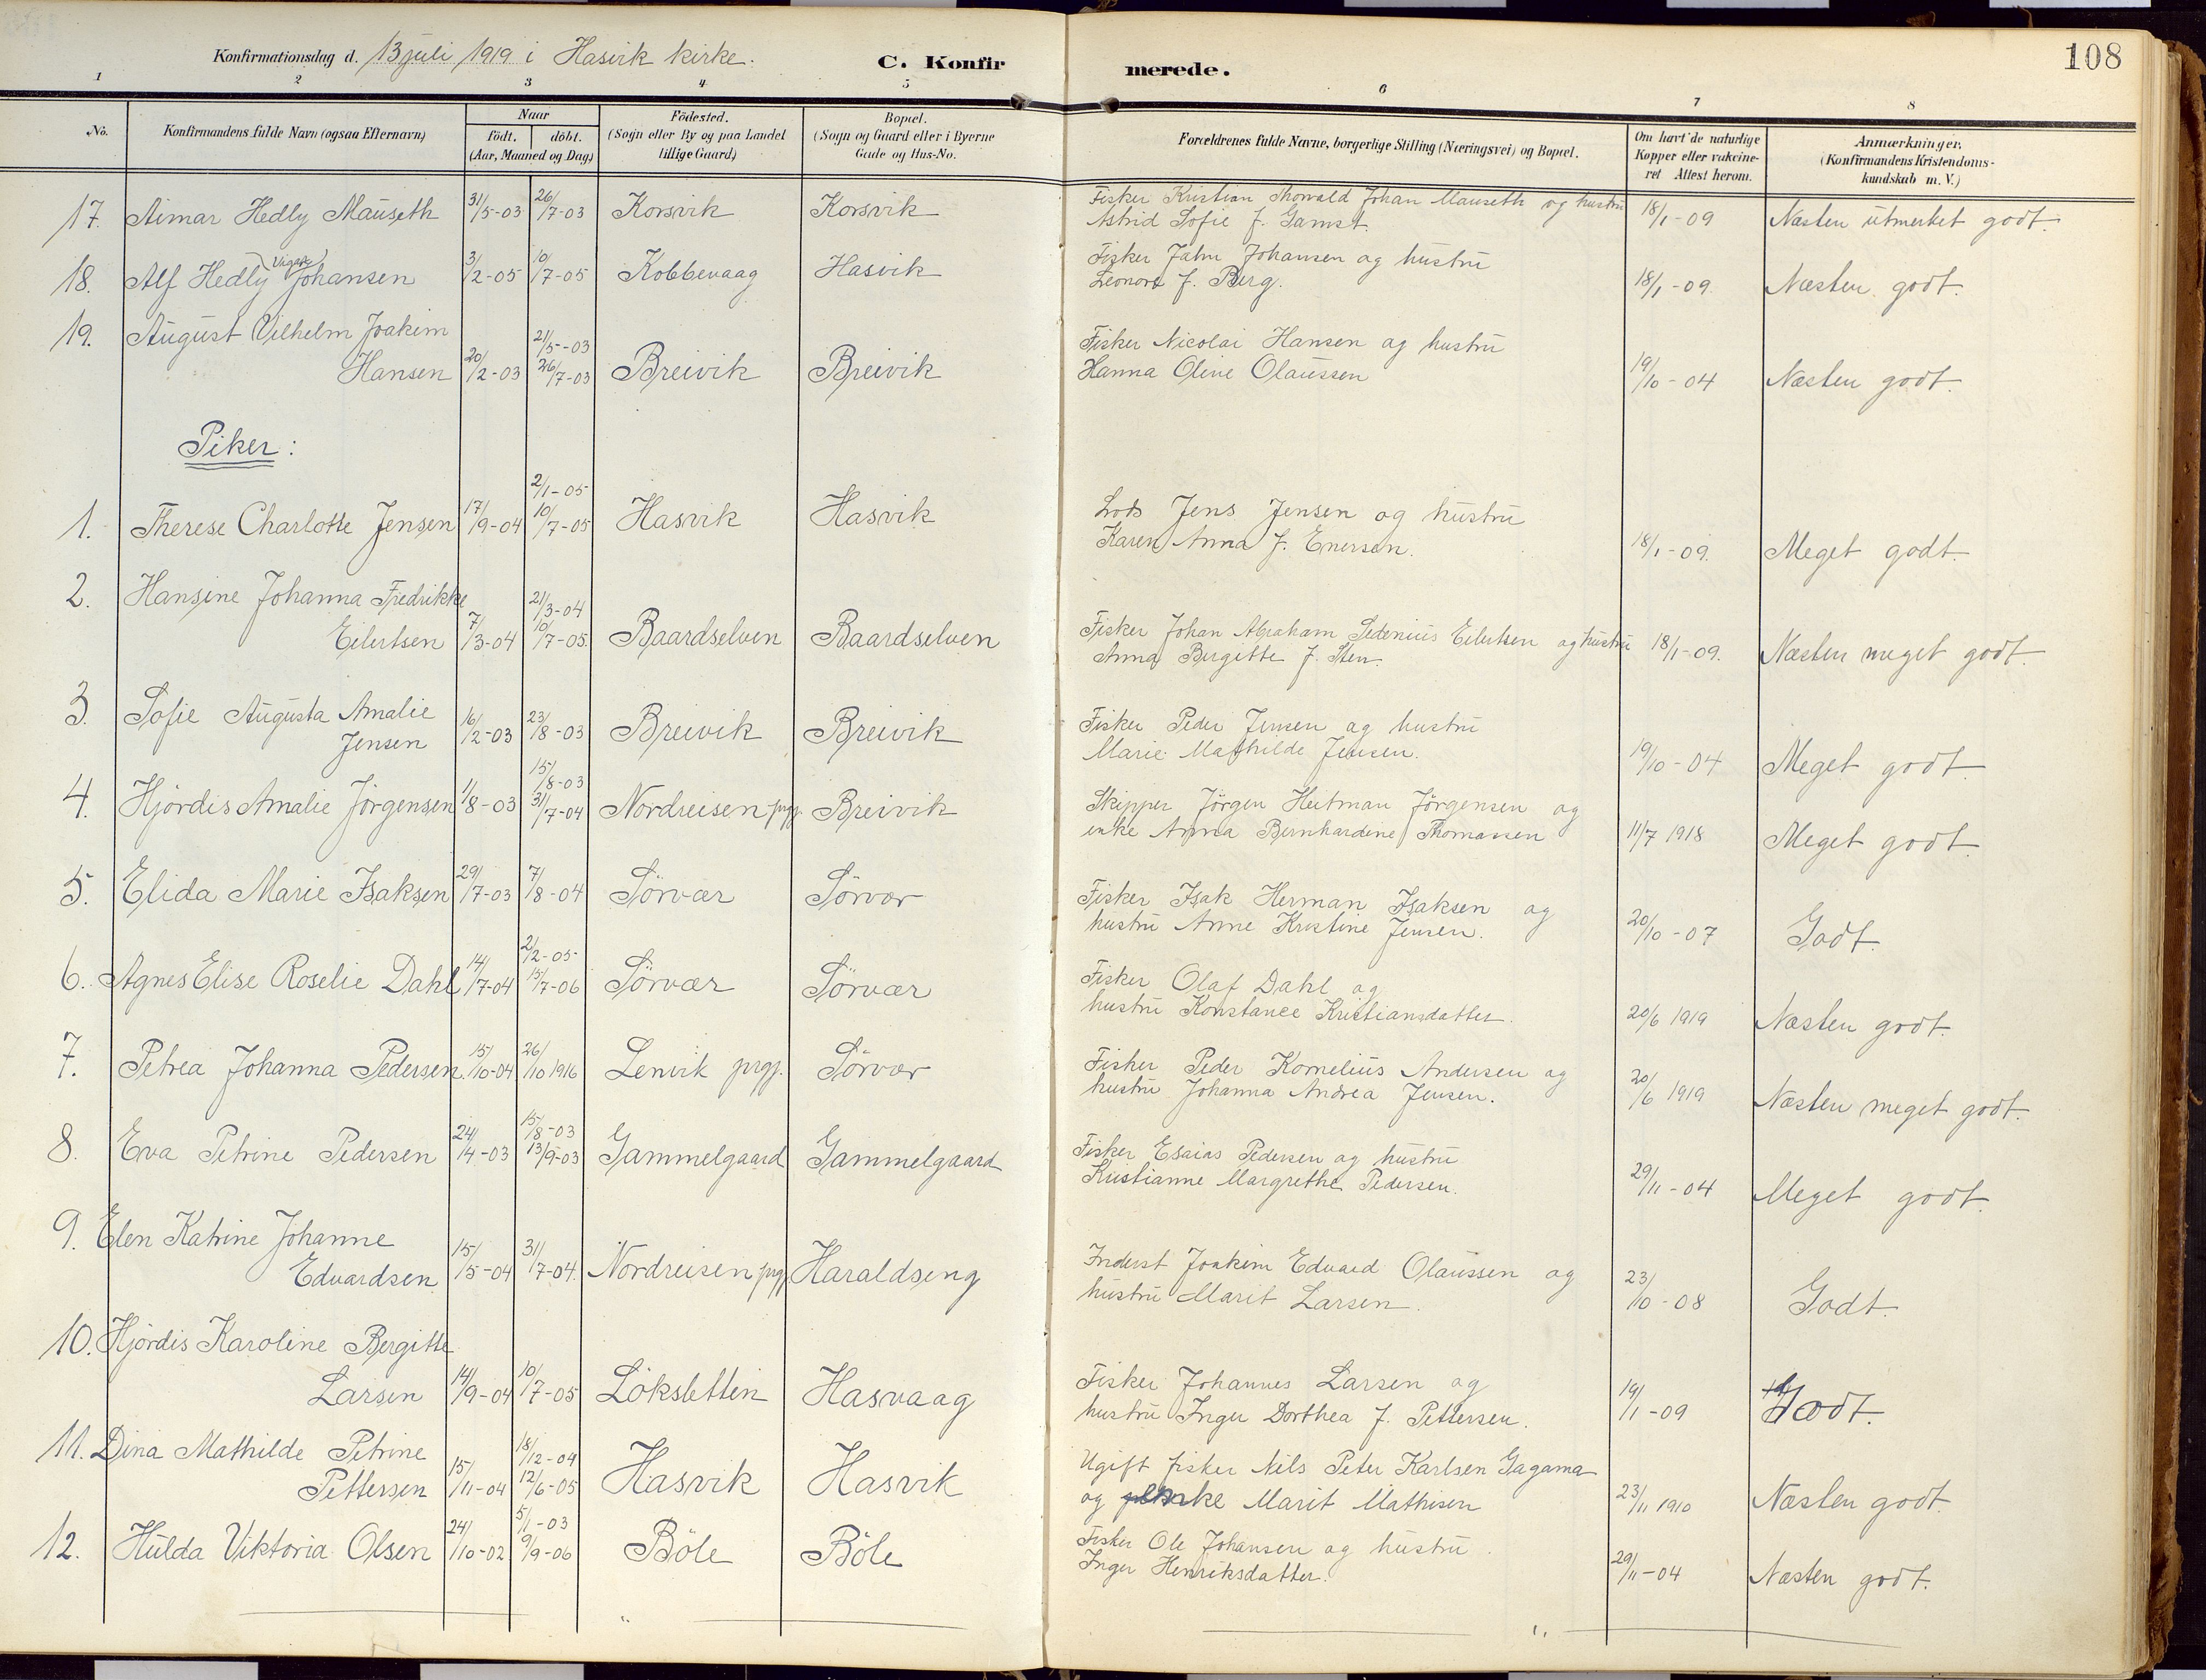 Konfirmationsdag d. 13 juli 1919 i Hasvik kirke.
C. Konfirmerede.
108
1 2 3 4 5 6 7 8
No.
Konfirmandens fulde Navn (ogsaa Efternavn)
Naar
födt. döbt.
(Aar, Maaned og Dag)
Födested.
(Sogn eller By og paa Landet
tillige Gaard)
Bopæl.
(Sogn og Gaard eller i Byerne
Gade og Hus-No.
Forældrenes fulde Navne, borgerlige Stilling (Næringsvei) og Bopæl.
Om havt de naturlige
Kopper eller vakcine-
ret Attest herom.
Anmærkninger.
(Konfirmandens Kristendoms-
kundskab m. V.)
17. Aimar Hedly Mauseth 31/5-03 26/7-03 Korsvik Korsvik
Fisker Kristian Thorvald Johan Mauseth og hustru
Astrid Sofie f. Gamst. 18/1-09 Næsten utmerket godt.
18. Alf Hedly Johansen 3/2-05 10/7-05 Kobbevaag Hasvik
Fisker Johan Johansen og hustru
Leonore f. Berg. 18/1-09. Næsten godt.
19. August Vilhelm Joakim
Hansen 20/2-03 21/5-03 26/7-03 Breivik Breivik
Fisker Nicolai Hansen og hustru
Hanna Oline Olaussen 19/10-04 Næsten godt.
Piker:
1. Therese Charlotte Jensen 17/9-04 2/1-05 10/7-05 Hasvik Hasvik
Lods Jens Jensen og hustru
Karen Anna f. Enersen. 18/1-09. Meget godt.
2. Hansine Johanna Fredrikke
Eilertsen 7/3-04 21/3-04 10/7-05. Baardselven Baardselven
Fisker Johan Abraham Sedenius Eilertsen og hustru
Anna Birgitte f. Sten. 18/1-09. Næsten meget godt.
3. Sofie Augusta Amalie
Jensen 16/2-03 23/8-03 Breivik Breivik
Fisker Peder Jensen og hustru
Marie Mathilde Jensen. 19/10-04 Meget godt.
4. Hjördis Amalie Jörgensen 1/8-03 15/8-03 31/7-04 Nordreisen prgj. Breivik
Skipper Jörgen Heitman Jörgensen og
enke Anna Bernhardine Thomassen 11/7 1918 Meget godt.
5. Elida Marie Isaksen 29/7-03 7/8-04 Sörvær Sörvær
Fisker Isak Herman Isaksen og
hustru Anne Kristine Jensen. 20/10-07 Godt.
6. Agnes Elise Roselie Dahl 14/7-04 2/2-05 15/7-06 Sörvær Sörvær
Fisker Olaf Dahl og
hustru Konstance Kristiansdatter. 20/6 1919 Næsten godt.
7. Petrea Johanna Pedersen. 15/10-04 26/10 1916 Lenvik prgj. Sörvær
Fisker Peder Kornelius Andersen og
hustru Johanna Andrea Jensen. 20/6 1919 Næsten meget godt.
8. Eva Petrine Pedersen 24/4-03 15/8-03 13/9-03 Gammelgaard Gammelgaard
Fisker Esaias Pedersen og hustru
Kristianne Margrethe Pedersen. 29/11-04 Meget godt.
9. Elen Katrine Johanne
Edvardsen 15/5-04 31/7-04. Nordreisen prgj. Haraldseng
Inderst Joakim Edvard Olaussen og
hustru Marit Larsen. 23/10-08 Godt.
10. Hjördis Karoline Bergitte
Larsen 14/9-04 10/7-05 Löksletten Hasvaag
Fisker Johannes Larsen og
hustru Inger Dorthea f. Pettersen. 19/1-09 Godt.
11. Dina Mathilde Petrine
Pettersen 15/11-04 18/12-04 12/6-05 Hasvik Hasvik
Ugift fisker Nils Peter Karlsen Gagama
og Marit Mathisen 23/11 1910 Næsten godt.
12. Hulda Viktoria Olsen 24/10-02 5/1-03 9/9-06 Böle Böle
Fisker Ole Johansen og hustru
Inger Henriksdatter. 29/11-04 Næsten godt.